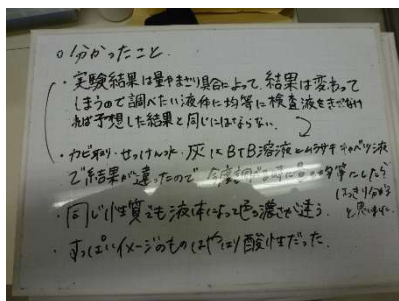 ○分かったこと.
・実験結果は量やまざり具合によって、結果は変わって
しまうので調べたい液体に均等に検査液をまぜなけ
れば予想した結果と同じにはならない.
・カビ取り・せっけん水・灰はBTB溶液とムラサキキャベツ液
で結果が違ったので 今度調べる時に 均等にしたら
はっきり分かる
と思いました.
・同じ性質でも液体によって色の濃さが違う.
・すっぱいイメージのものはやはり酸性だった.